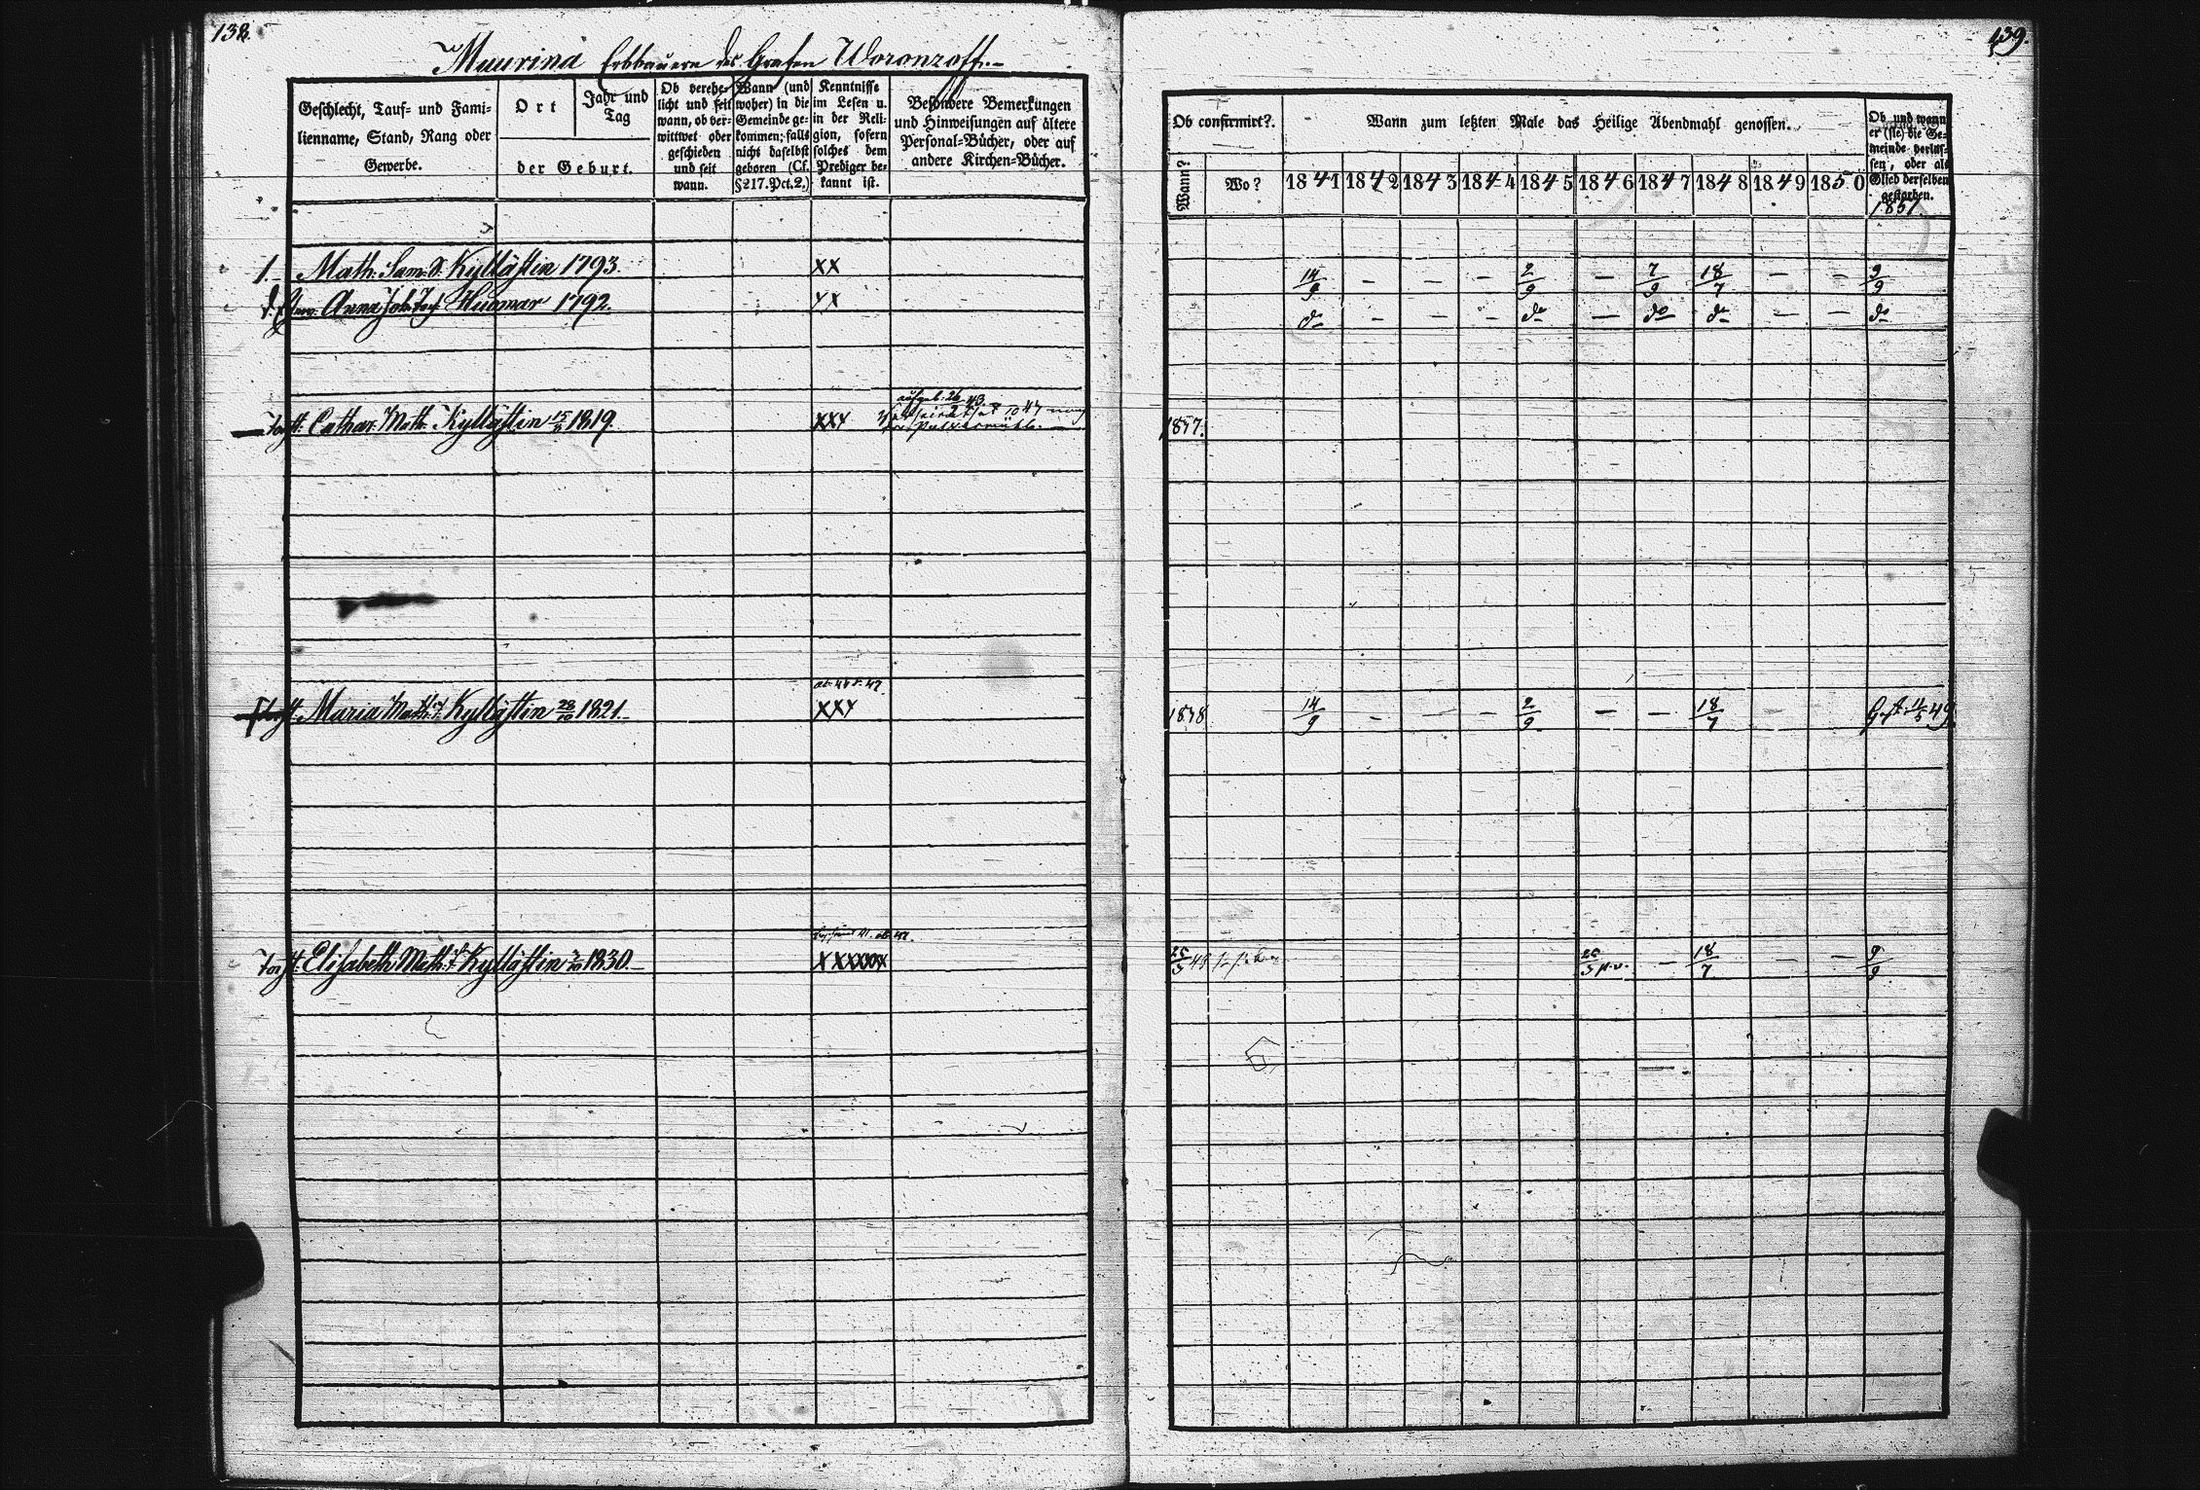 138.
Muurina Erbbauern des Grafen Woronzoff.
Geschlecht, Tauf- und Fami-
lienname, Stand, Rang oder
Gewerbe.
Ort
Jahr und
Tag
der Geburt.
Ob verehe-
licht und seit
wann, ob ver-
wittwet oder
geschieden
und seit
wann.
Wann (und
woher) in die
Gemeinde ge-
kommen; falls
nicht daselbst
geboren (Cf.
§217. Pct. 2.)
Kenntnisse
im Lesen u.
in der Reli-
gion, sofern
solches dem
Prediger be-
kannt ist.
Besondere Bemerkungen
und Hinweisungen auf ältere
Personal-Bücher, oder auf
andere Kirchen-Bücher.
1. Math. Sam. S. Kyllästin 1793. XX
Anna Joh. Huumar 1792. XX
aufgeb. 26 43.
Cathar. Math. Kyllästin 1819. XXX
Maria Math. Kyllästin 28/10 1821. XXX
Elisabeth Math. Kyllästin 1830. XXXXXX
139.
Ob confirmirt?
Wann?
Wo?
Wann zum letzten Male das Heilige Abendmahl genossen.
1841 1842 1843 1844 1845 1846 1847 1848 1849 1850
Ob und wann
er (sie) die Ge-
meinde verlas-
sen, oder als
Glied derselben
gestorben.
1851
14/9 – – – 2/9 – 7/9 18/7 – – 9/9
do – – – do – do do – – do
1837.
1838 14/9 – – – 2/9 – – 18/7 –
18/7 – – 9/9